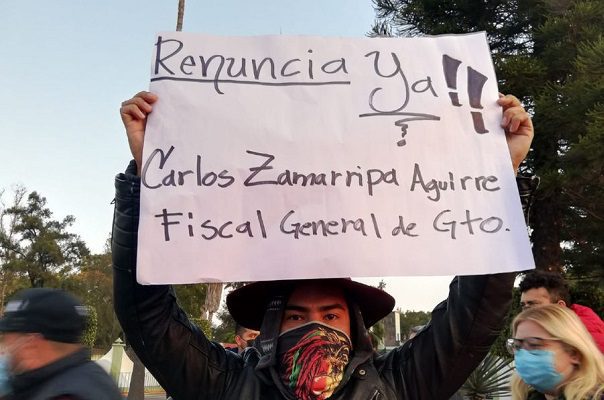 Renuncia Ya!!
Carlos Zamarripa Aguirre
Fiscal General de Gto.